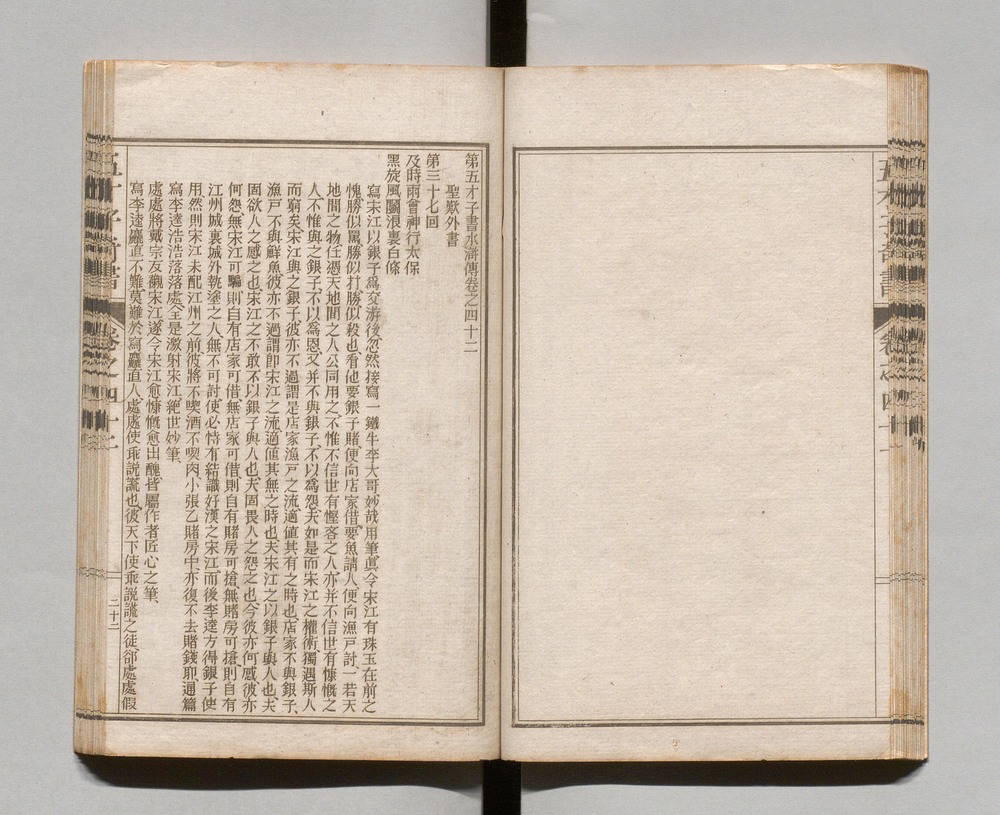 第五才子書水滸傳卷之四十二
聖歎外書
第三十七回
及時雨會神行太保
黑旋風鬭浪裏白條
寫宋江以銀子爲交游後忽然接寫一鐵牛李大哥妙哉用筆眞令宋江有珠玉在前之
愧勝似罵勝似打勝似殺也看他要銀子賭便向店家借要魚請人便向漁戸討一若天
地間之物任憑天地間之人公同用之不惟不信世有慳吝之人亦并不信世有慷慨之
人不惟與之銀子不以爲恩又并不與銀子不以爲怨夫如是而宋江之權術獨遇斯人
而窮矣宋江與之銀子彼亦不過謂是店家漁戸之流適值其有之時也店家不與銀子、
漁戸不與鮮魚彼亦不過謂卽宋江之流適值其無之時也夫宋江之以銀子與人也夫
固欲人之感之也宋江之不敢不以銀子與人也夫固畏人之怨之也今彼亦何感彼亦
何怨無宋江可騙則自有店家可借無店家可借則自有賭房可搶無賭房可搶則自有
江州城裏城外執塗之人無不可討使必恃有結識好漢之宋江而後李逵方得銀子使
用然則宋江未配江州之前彼將不喫酒不喫肉小張乙賭房中亦復不去賭錢耶通篇
寫李逵浩浩落落處全是激射宋江絕世妙筆、
處處將戴宗反襯宋江遂令宋江愈慷慨愈出醜皆屬作者匠心之筆、
寫李逵麤直不難莫難於寫麤直人處處使乖說謊也彼天下使乖說謊之徒卻處處假
五才子奇書
卷之四十二
二十二
五才子奇書
卷之四十一